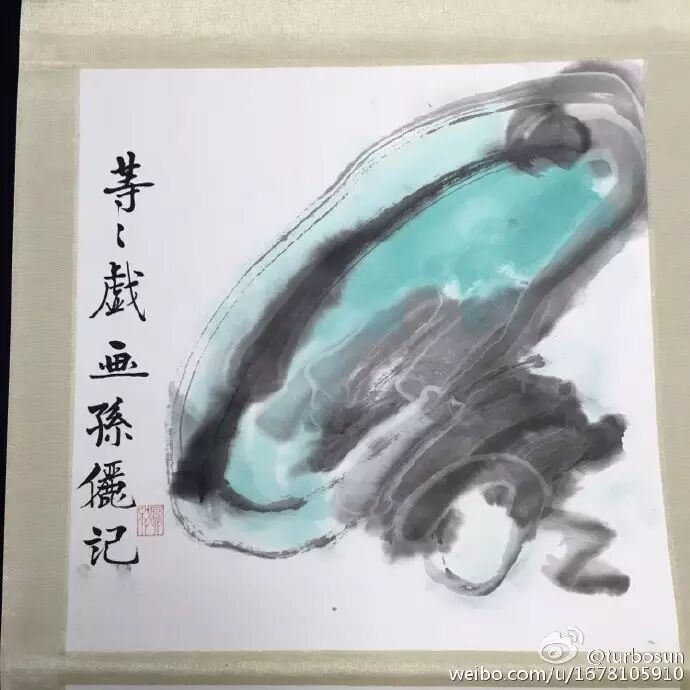 等〻戯画孫儷记
@turbosun
weibo.com/u/1678105910